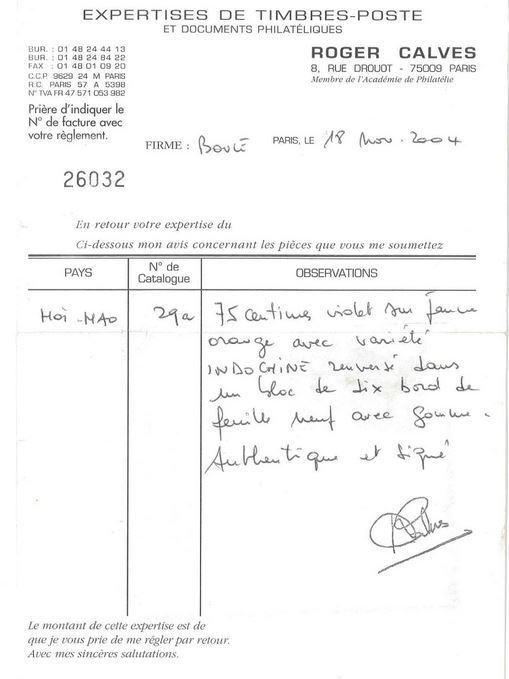 EXPERTISES DE TIMBRES-POSTE
ET DOCUMENTS PHILATÉLIQUES
BUR. : 01 48 24 44 13
BUR. : 01 48 24 84 22
FAX : 01 48 01 09 20
C.C.P. 9629 24 M PARIS
R.C. PARIS 57 A 5398
N° TVA FR 47 571 053 982
ROGER CALVES
8, RUE DROUOT - 75009 PARIS
Membre de l'Académie de Philatélie
Prière d'indiquer le
N° de facture avec
votre règlement.
FIRME : Boulé PARIS, LE 18 Nov. 2004
26032
En retour votre expertise du
Ci-dessous mon avis concernant les pièces que vous me soumettez
PAYS N° de Catalogue OBSERVATIONS
Hoï-HAO 29a 75 centimes violet sur jaune
orange avec variété
INDOCHINE renversé dans
un bloc de six bord de
feuille neuf avec gomme.
Authentique et signé
Calves
Le montant de cette expertise est de
que je vous prie de me régler par retour.
Avec mes sincères salutations.